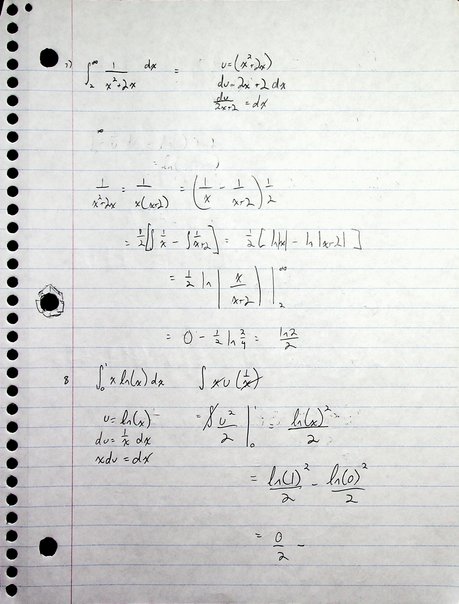 7) ∫₂^∞ 1/(x²+2x) dx = u=(x²+2x)
du=2x+2 dx
du/(2x+2) = dx
∞
1/(x²+2x) = 1/(x(x+2)) = (1/x - 1/(x+2)) 1/2
= 1/2[∫1/x - ∫1/(x+2)] = 1/2[ln|x| - ln|x+2|]
= 1/2 ln |x/(x+2)| |₂^∞
= 0 - 1/2 ln 2/4 = ln2/2
8 ∫₀¹ x ln(x) dx ∫ x u (1/x)
u = ln(x) = u²/2 |₀¹ = ln(x)²/2
du = 1/x dx
x du = dx
= ln(1)²/2 - ln(0)²/2
= 0/2 -